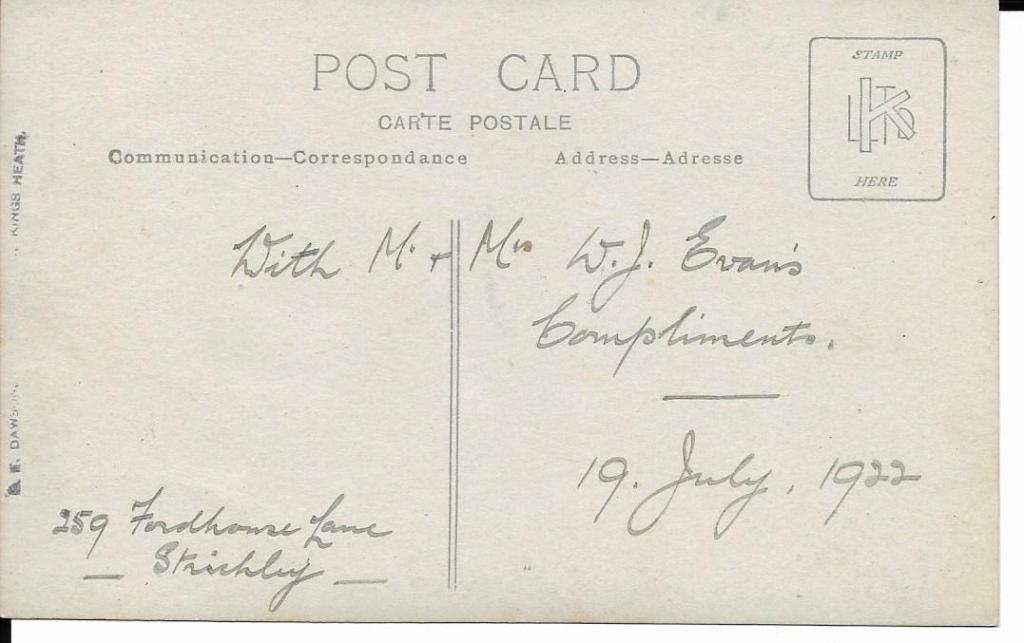 POST CARD
CARTE POSTALE
Communication—Correspondance
Address—Adresse
STAMP
HERE
With Mr + Mrs W. J. Evans's
Compliments.
19. July, 1922
259 Fordhouse Lane
— Stirchley —
KINGS HEATH.
DAWSON,